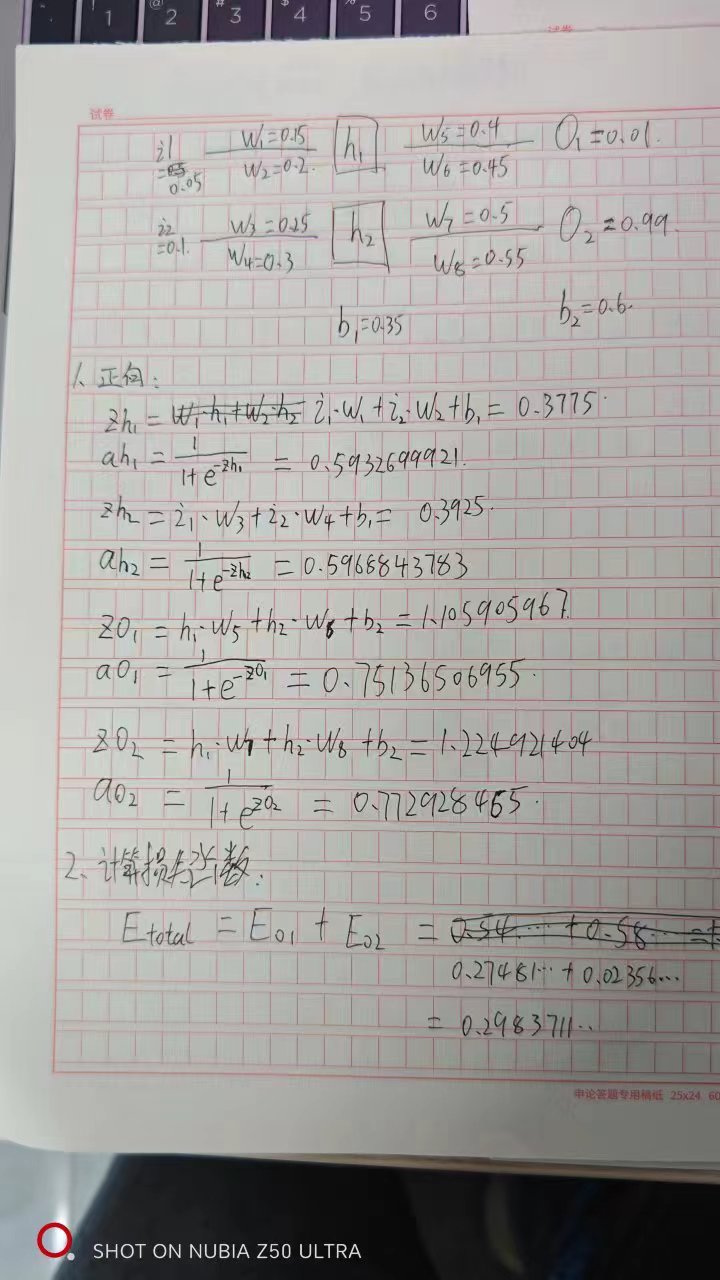 ! 1 @ 2 # 3 $ 4 % 5 6
试卷
试卷
i1 =0.05 W₁=0.15 W₂=0.2. h₁ W₅=0.4 W₆=0.45 O₁=0.01.
i₂ =0.1. W₃=0.25 W₄=0.3 h₂ W₇=0.5 W₈=0.55 O₂=0.99.
b₁=0.35 b₂=0.6.
1、正向:
zh₁ = W₁·h₁+W₂·h₂ i₁·W₁+i₂·W₂+b₁= 0.3775.
ah₁ = 1/(1+e^-zh₁) = 0.5932699921.
zh₂ = i₁·W₃+i₂·W₄+b₁= 0.3925.
ah₂ = 1/(1+e^-zh₂) = 0.5968843783
ZO₁ = h₁·W₅+h₂·W₆+b₂=1.105905967.
aO₁ = 1/(1+e^-zO₁) = 0.75136506955.
ZO₂ = h₁·W₇+h₂·W₈+b₂=1.224921404
aO₂ = 1/(1+e^zO₂) = 0.772928465.
2、计算损失函数:
Etotal = EO1 + EO2 = 0.54… + 0.58… =
0.27481… + 0.02356…
= 0.2983711..
申论答题专用稿纸 25x24 60
SHOT ON NUBIA Z50 ULTRA